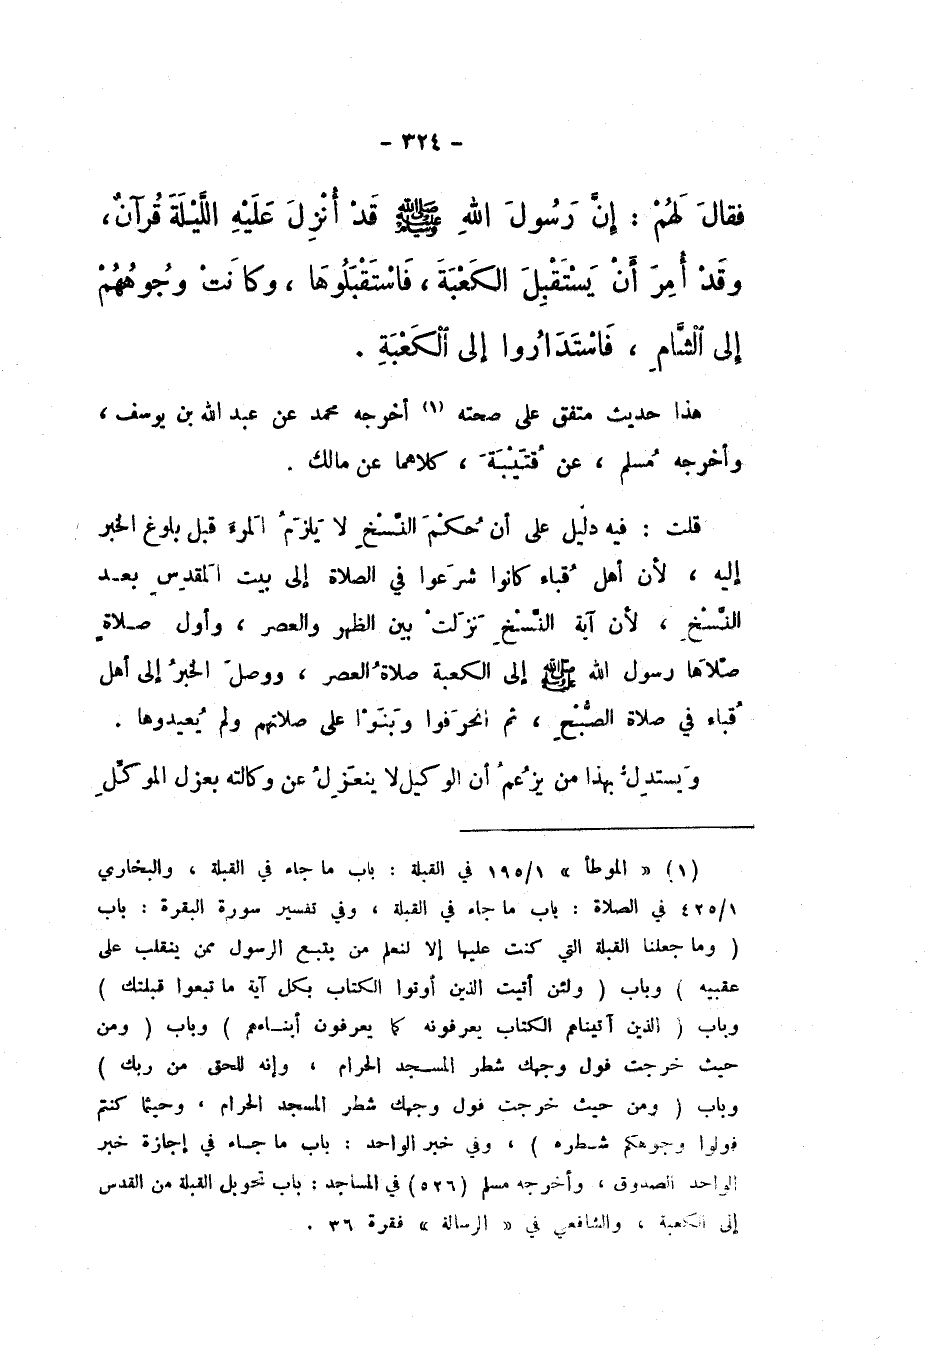 - ٣٢٤ -
فقالَ لَهُمْ : إِنَّ رَسُولَ اللهِ ﷺ قَدْ أُنْزِلَ عَلَيْهِ اللَّيْلَةَ قُرآنٌ،
وقَدْ أُمِرَ أَنْ يَسْتَقْبِلَ الكَعْبَةَ ، فَاسْتَقْبَلُوهَا ، وكَانَتْ وجُوهُهُمْ
إلى الشَّامِ ، فَاسْتَدَارُوا إلى الْكَعْبَةِ .
هذا حديث متفق على صحته (١) أخرجه محمد عن عبد الله بن يوسف ،
وأخرجه مُسلم ، عن قُتَيْبَةَ ، كلاهما عن مالك .
قلت : فيه دليل على أن حُكمَ النَّسْخِ لا يَلزَمُ المرءَ قبل بلوغ الخبر
إليه ، لأن أهل قُباء كانوا شرَعوا في الصلاة إلى بيت المَقدِسِ بعد
النَّسْخِ ، لأن آية النَّسْخِ نَزَلتْ بين الظهر والعصر ، وأول صلاةٍ
صلَّاها رسول الله ﷺ إلى الكعبة صلاةُ العصر ، ووصلَ الخبرُ إلى أهل
قُباء في صلاة الصُّبْحِ ، ثم انحرَفوا وبَنَوْا على صلاتهم ولم يُعيدوها .
ويَستدِلُّ بهذا من يزعُمُ أن الوكيل لا ينعَزِلُ عن وكالته بعزل الموكِّلِ
(١) « الموطأ » ١٩٥/١ في القبلة : باب ما جاء في القبلة ، والبخاري
٤٢٥/١ في الصلاة : باب ما جاء في القبلة ، وفي تفسير سورة البقرة : باب
( وما جعلنا القبلة التي كنت عليها إلا لنعلم من يتبع الرسول ممن ينقلب على
عقبيه ) وباب ( ولئن أتيت الذين أوتوا الكتاب بكل آية ما تبعوا قبلتك )
وباب ( الذين آتيناهم الكتاب يعرفونه كما يعرفون أبناءهم ) وباب ( ومن
حيث خرجت فول وجهك شطر المسجد الحرام ، وإنه للحق من ربك )
وباب ( ومن حيث خرجت فول وجهك شطر المسجد الحرام ، وحيثما كنتم
فولوا وجوهكم شطره ) ، وفي خبر الواحد : باب ما جاء في إجازة خبر
الواحد الصدوق ، وأخرجه مسلم (٥٢٦) في المساجد : باب تحويل القبلة من القدس
إلى الكعبة ، والشافعي في « الرسالة » فقرة ٣٦ .